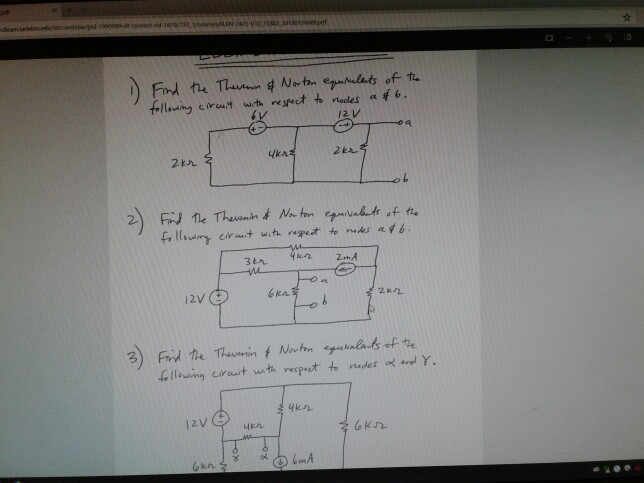 1) Find the Thevenin & Norton equivalents of the
following circuit with respect to nodes a & b.
6V
12 V
+ -
- +
a
2kΩ
4kΩ
2kΩ
b
2) Find the Thevenin & Norton equivalents of the
following circuit with respect to nodes a & b.
4kΩ
3kΩ
2mA
a
12V
6kΩ
b
2kΩ
3) Find the Thevenin & Norton equivalents of the
following circuit with respect to nodes α and γ.
12V
4kΩ
4kΩ
6kΩ
γ
α
6kΩ
6mA